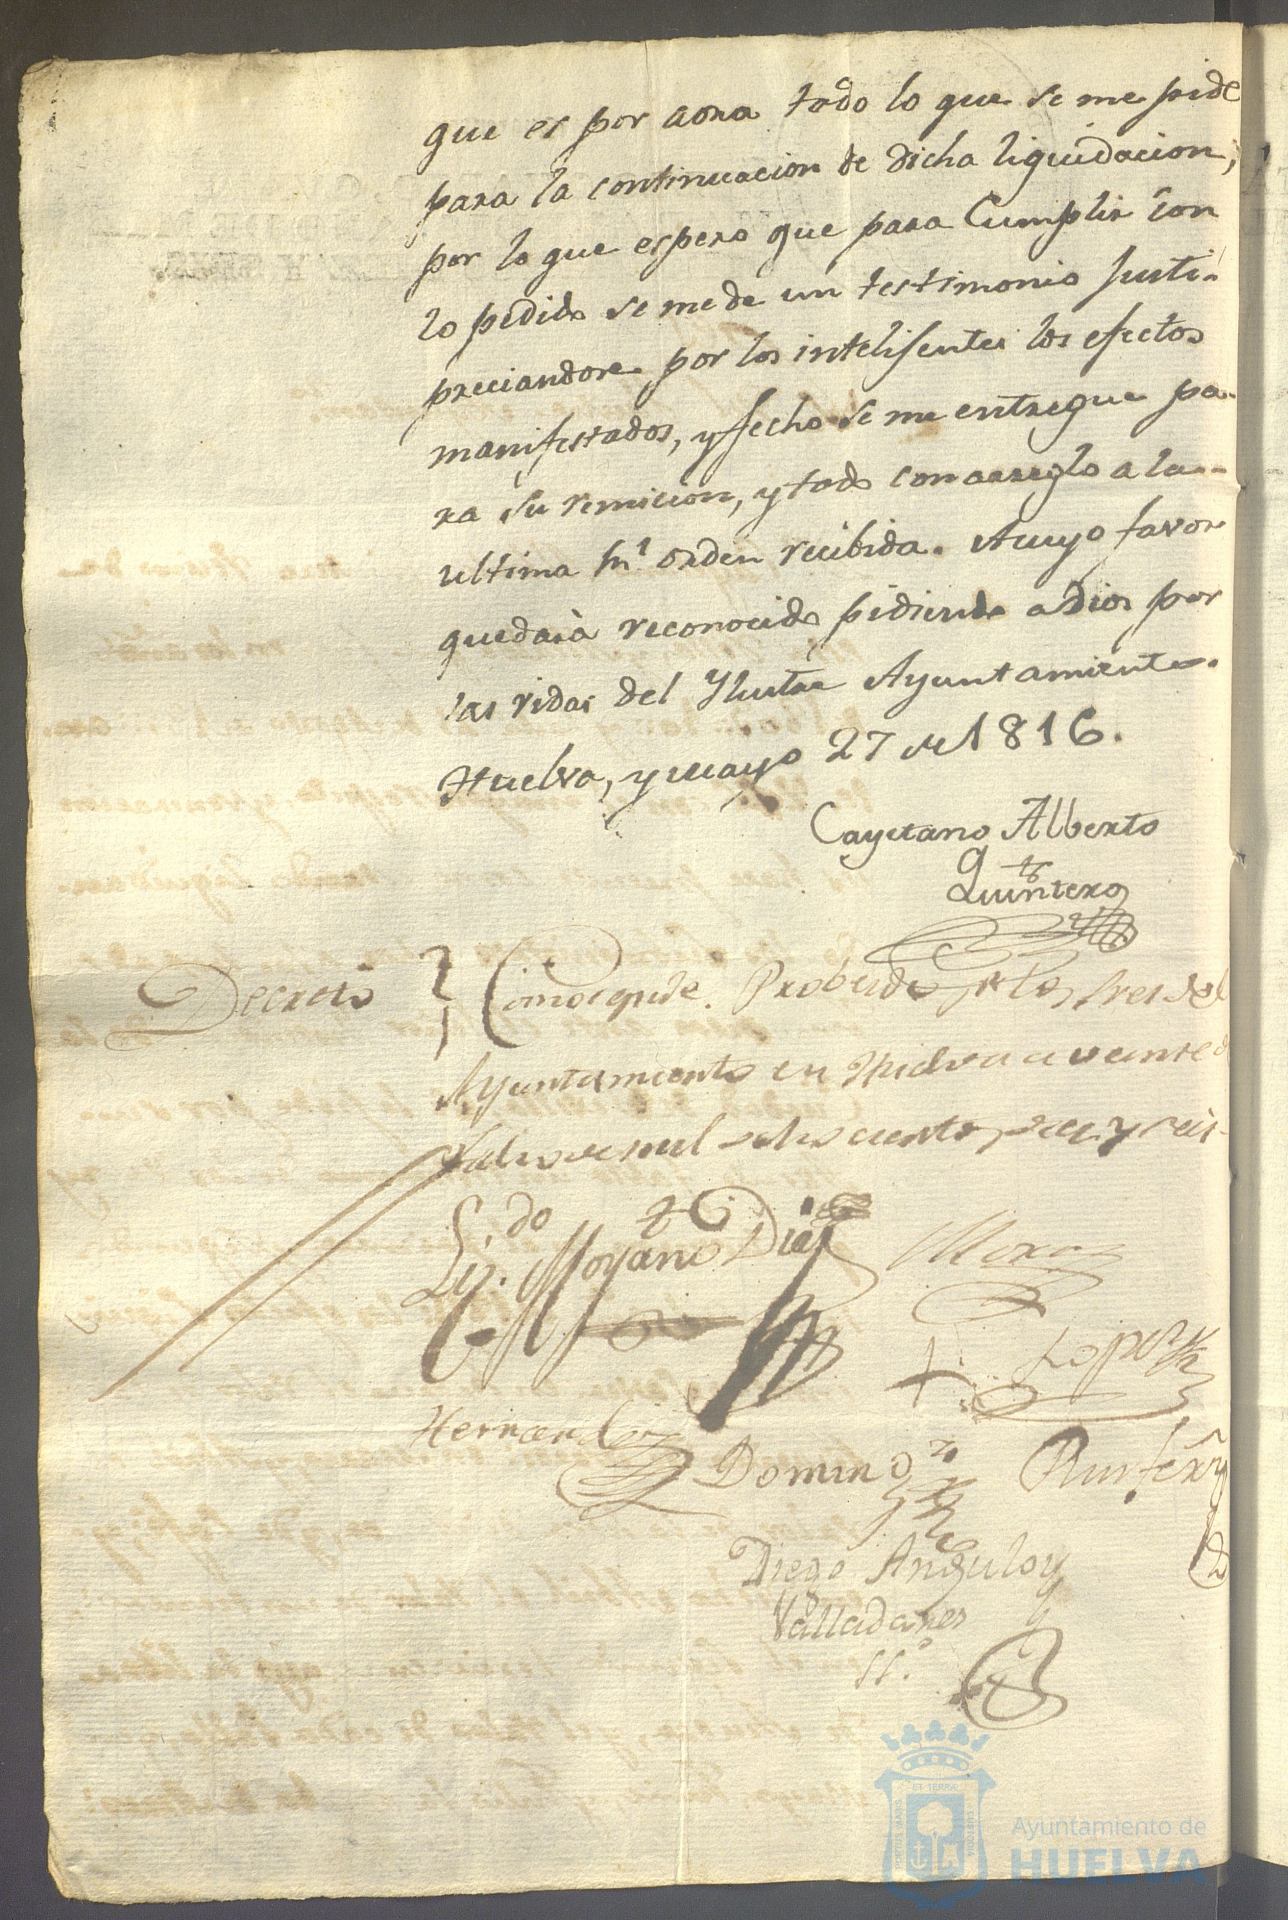 que es por aora todo lo que se me pide
para la continuacion de dicha liquidacion,
por lo que espero que para Cumplir con
lo pedido se me de un testimonio Justi-
preciandose por los intelisentes los efectos
manifestados, y fecho se me entregue pa-
ra su remicion, y todo con arreglo a la
ultima orden recibida. Acuyo favor
quedarà reconocido pidiendo a Dios por
las vidas del Ylustre Ayuntamiento.
Huelva, y mayo 27 de 1816.
Cayetano Alberto
Quintero
Decreto Como se pide. Probeido p.r los Sres del
Ayuntamiento en Huelva a veinte
ocho de mil ochocientos diez y seis
Liz.do Moyano Diaz Mora
Lopez
Hernandez Doming.o
Diego Angulo y
Valladares
ss.o
Ayuntamiento de
HUELVA